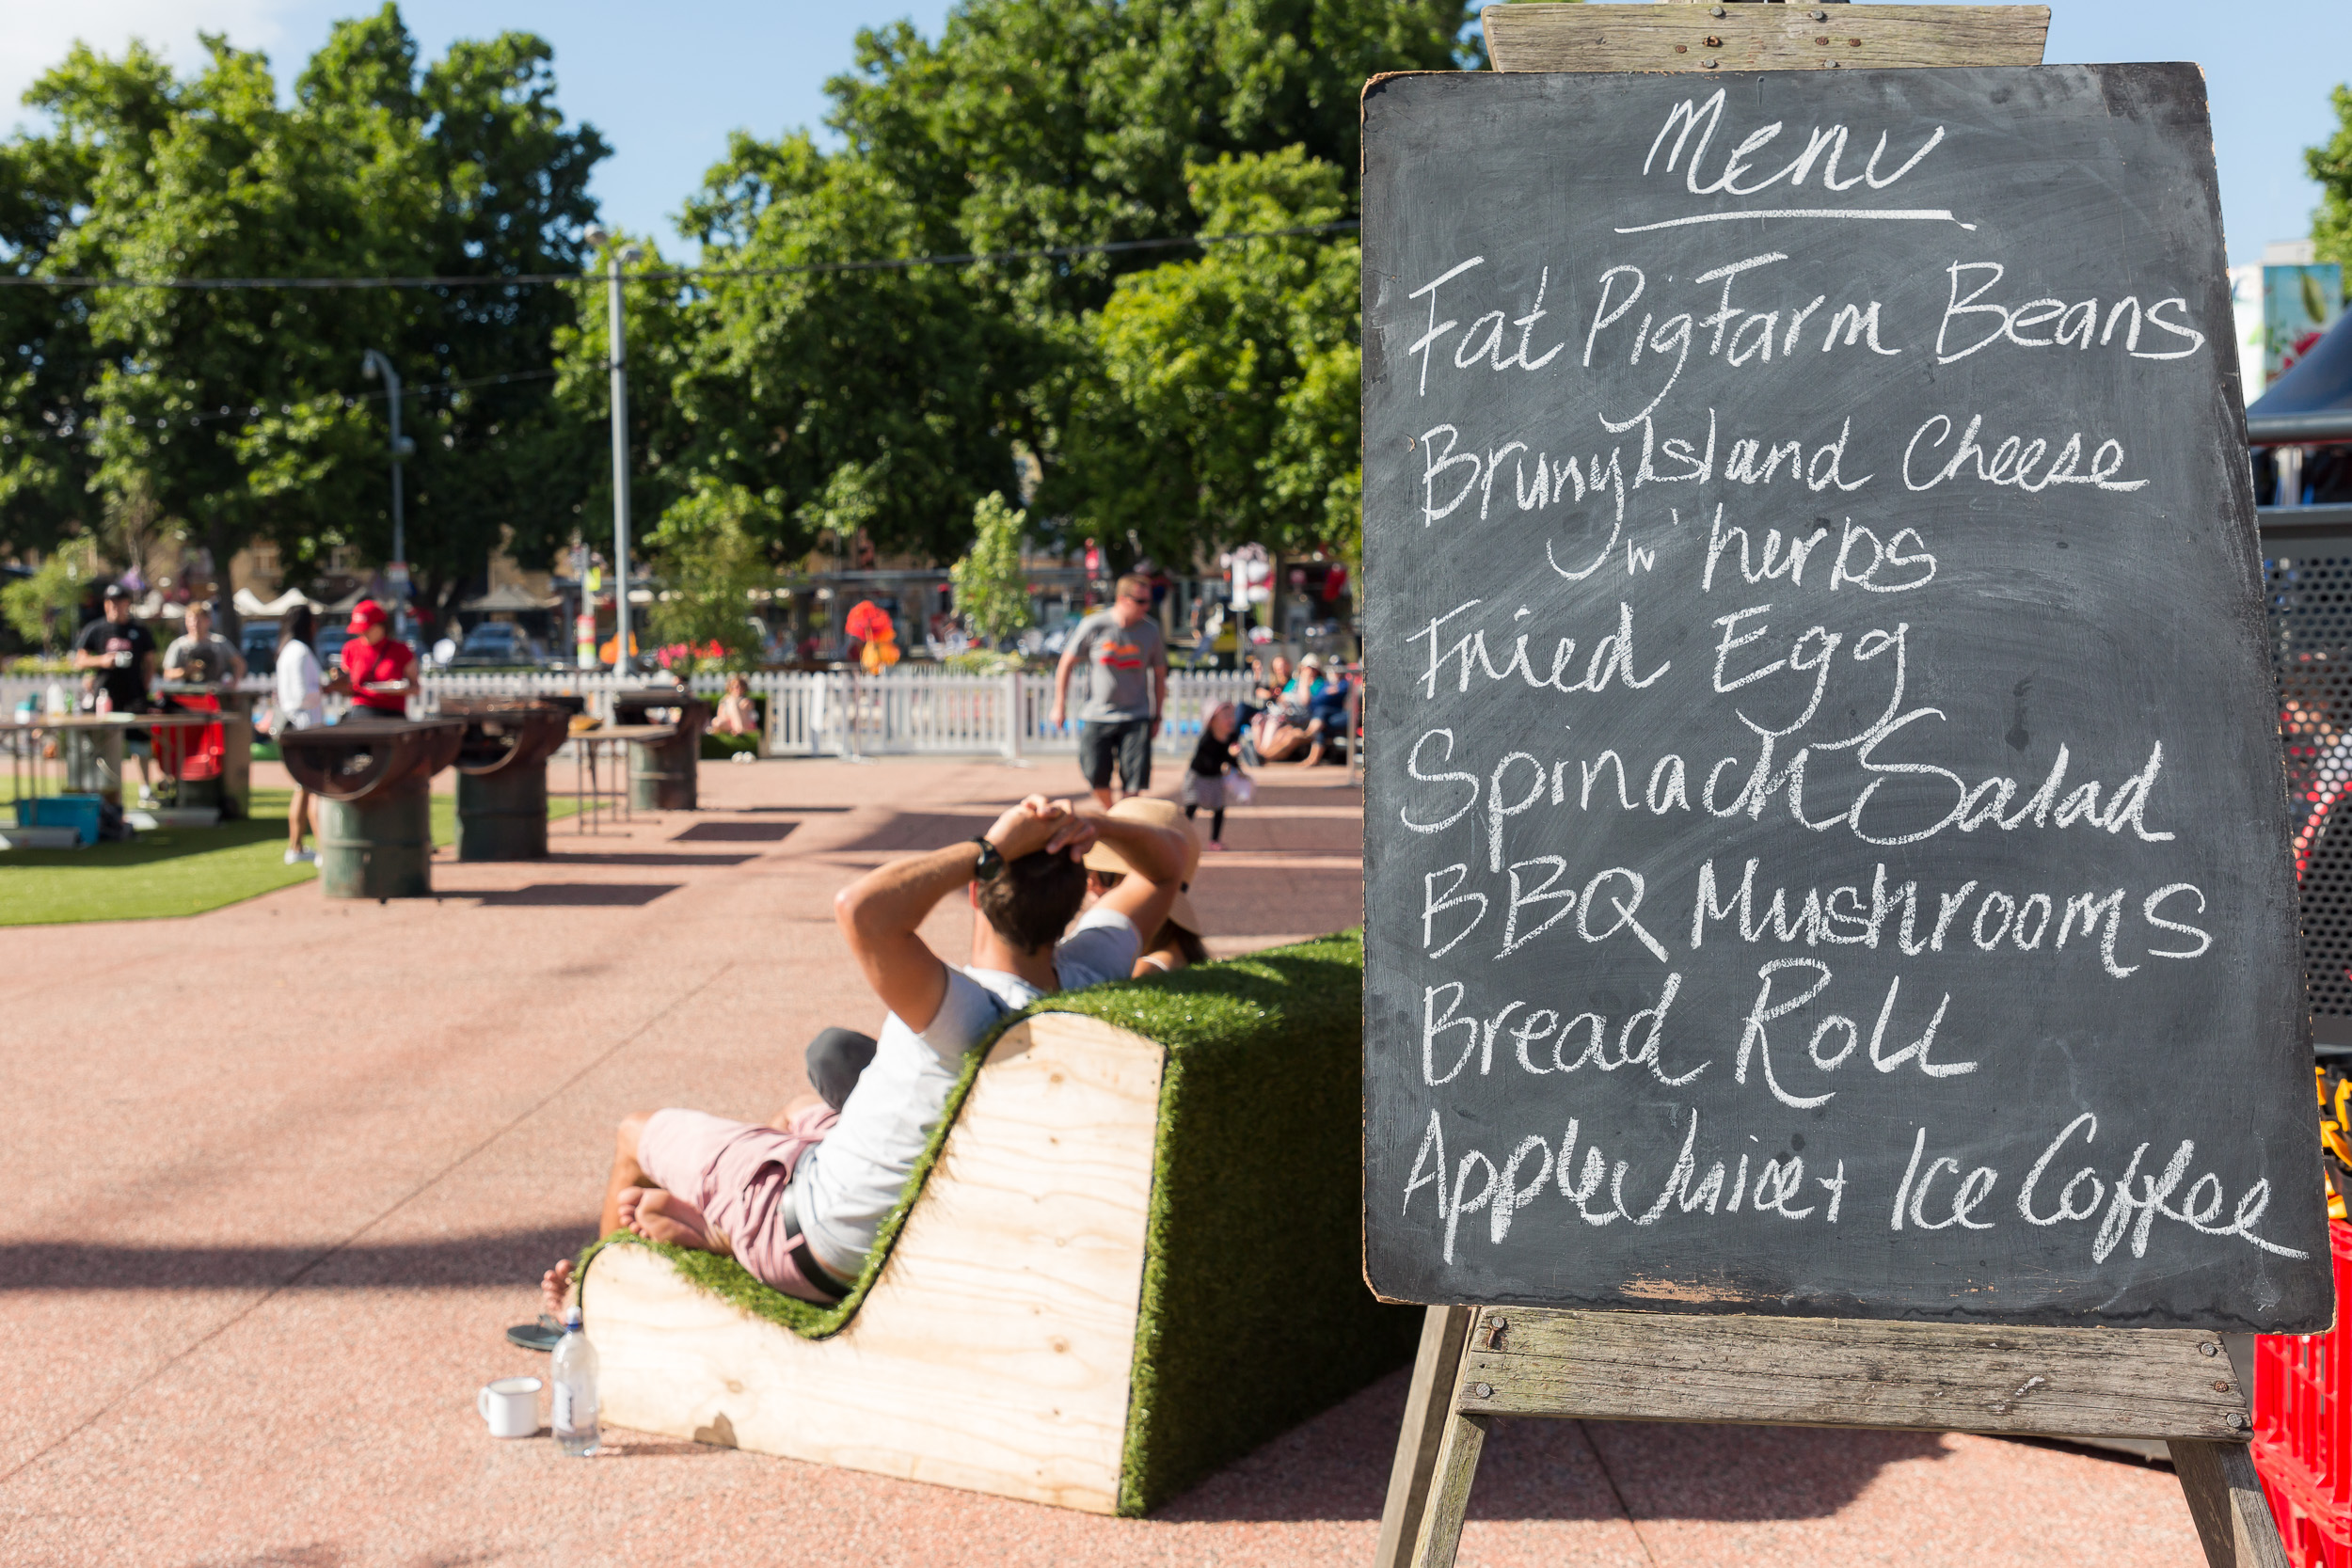 Menu
Fat Pig Farm Beans
Bruny Island Cheese
w' herbs
Fried Egg
Spinach Salad
BBQ Mushrooms
Bread Roll
Apple Juice + Ice Coffee